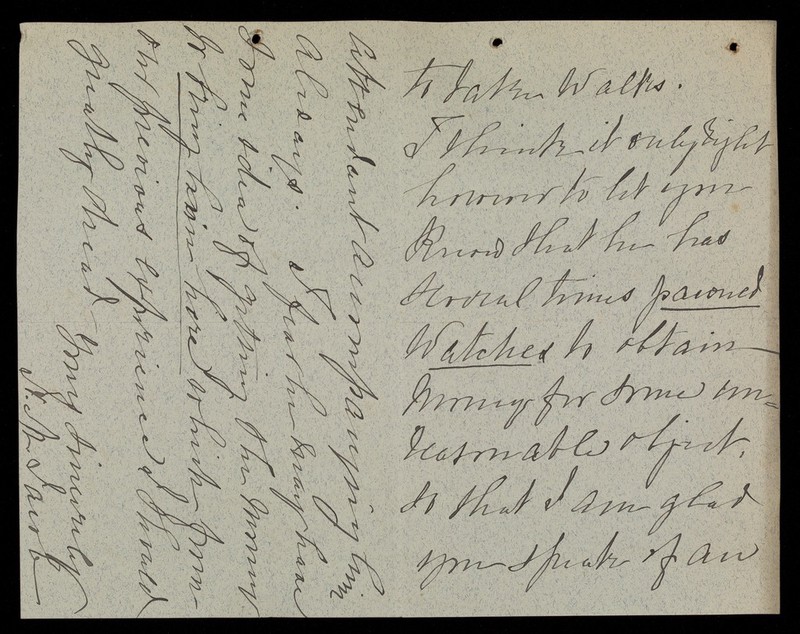 to take walks.
I think it only right
however to let you
know that he has
several times pawned
watches to obtain
money for some un=
reasonable object,
so that I am glad
you speak of an
attendant accompanying him
always. I fear he may have
some idea of getting the money
to bring him here which from
our previous experience I should
greatly dread
Yours sincerely